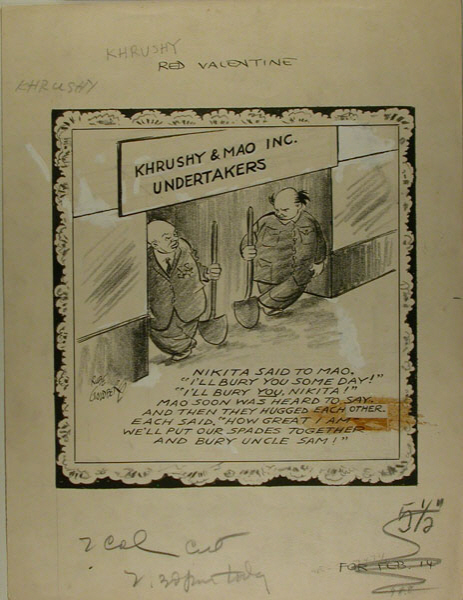 KHRUSHY
RED VALENTINE
KHRUSHY
KHRUSHY & MAO INC.
UNDERTAKERS
RUBE
GOLDBERG
NIKITA SAID TO MAO,
"I'LL BURY YOU SOME DAY!"
"I'LL BURY YOU, NIKITA!"
MAO SOON WAS HEARD TO SAY.
AND THEN THEY HUGGED EACH OTHER.
EACH SAID, "HOW GREAT I AM—
WE'LL PUT OUR SPADES TOGETHER
AND BURY UNCLE SAM!"
5 1/2"
2 Col Cut
2.30 pm today
FOR FEB. 14